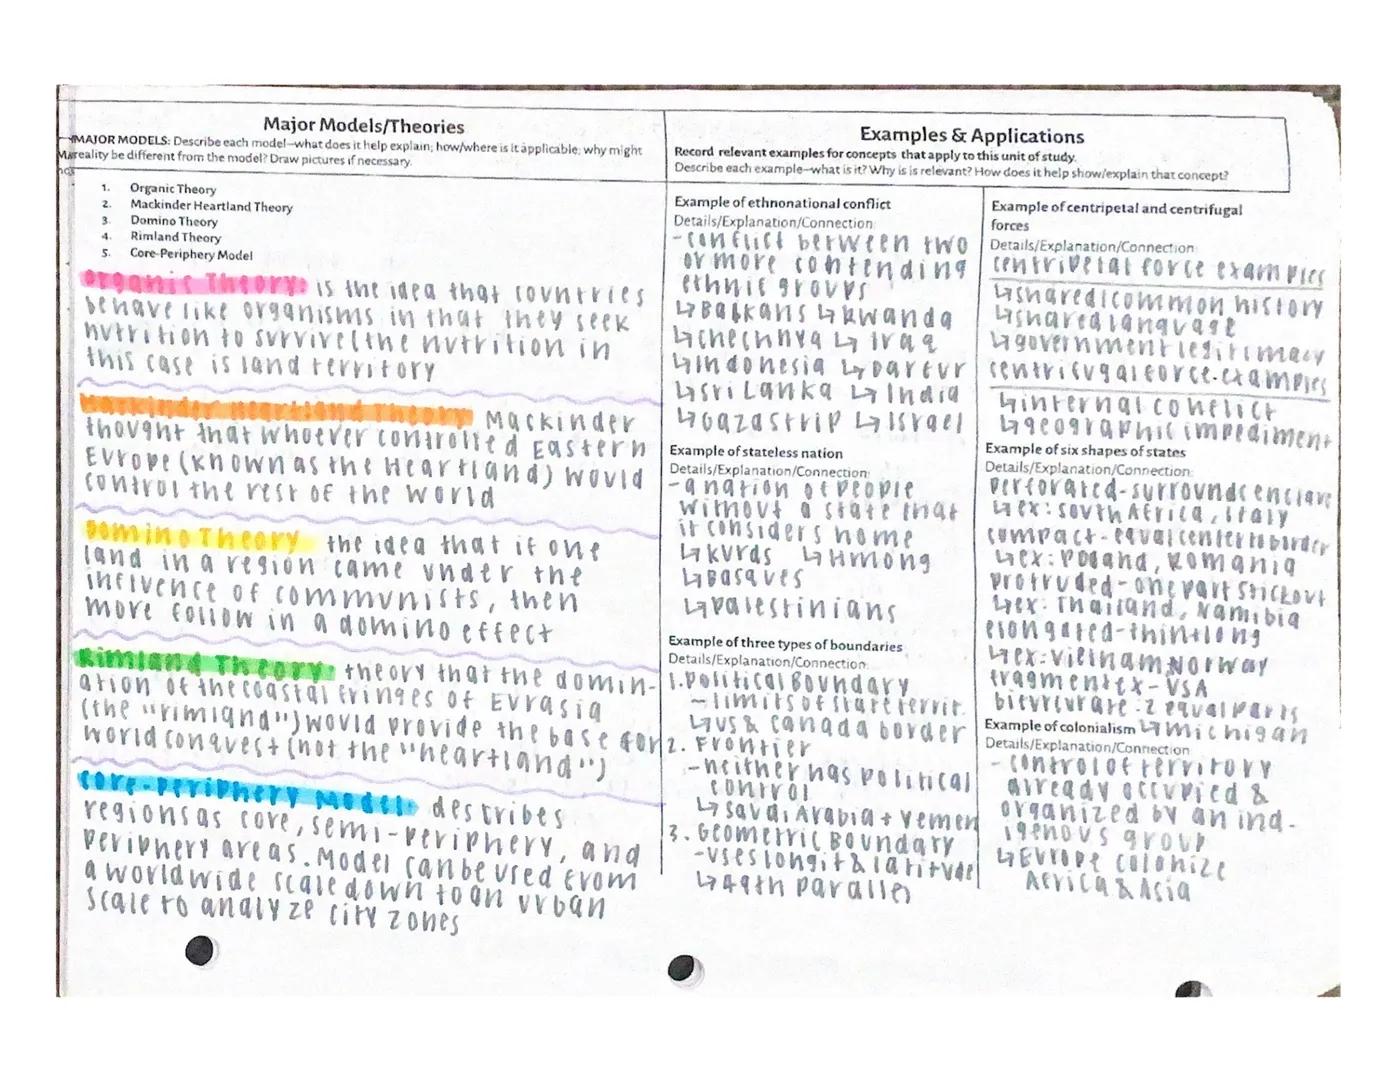 Major Models/Theories
MAJOR MODELS: Describe each model—what does it help explain; how/where is it applicable; why might
reality be different from the model? Draw pictures if necessary.
1. Organic Theory
2. Mackinder Heartland Theory
3. Domino Theory
4. Rimland Theory
5. Core-Periphery Model
Organic Theory: is the idea that countries
behave like organisms in that they seek
nutrition to survive (the nutrition in
this case is land territory
Mackinder Heartland Theory Mackinder
thought that whoever controlled Eastern
Europe (known as the Heartland) would
control the rest of the world
Domino Theory the idea that if one
land in a region came under the
influence of communists, then
more follow in a domino effect
Rimland Theory: theory that the domin-
ation of the coastal fringes of Eurasia
(the "rimland") would provide the base for
world conquest (not the "heartland")
Core-Periphery Model: describes
regions as core, semi-periphery, and
periphery areas. Model can be used from
a worldwide scale down to an urban
scale to analyze city zones
Examples & Applications
Record relevant examples for concepts that apply to this unit of study.
Describe each example—what is it? Why is is relevant? How does it help show/explain that concept?
Example of ethnonational conflict
Details/Explanation/Connection:
-conflict between two
or more contending
ethnic groups
↳Balkans ↳Rwanda
↳chechnya ↳Iraq
↳Indonesia ↳Darfur
↳Sri Lanka ↳India
↳Gaza strip ↳Israel
Example of stateless nation
Details/Explanation/Connection:
-a nation of people
without a state that
it considers home
↳Kurds ↳Hmong
↳Basques
↳Palestinians
Example of three types of boundaries
Details/Explanation/Connection:
1. Political Boundary
-limits of state territ.
↳US & Canada border
2. Frontier
-neither has political
control
↳Saudi Arabia + Yemen
3. Geometric Boundary
-uses longit & latitude
↳49th parallel
Example of centripetal and centrifugal
forces
Details/Explanation/Connection:
centripetal force examples
↳shared/common history
↳shared language
↳government legitimacy
centrifugal force examples
↳internal conflict
↳geographic impediment
Example of six shapes of states
Details/Explanation/Connection:
perforated-surrounds enclave
↳ex: South Africa, Italy
compact-equal center to border
↳ex: Poland, Romania
protruded-one part stick out
↳ex: Thailand, Namibia
elongated-thin+long
↳ex: Vietnam, Norway
fragment ex-USA
bifurcate: 2 equal parts
Example of colonialism ↳michigan
Details/Explanation/Connection
-control of territory
already occupied &
organized by an ind-
igenous group
↳Europe colonize
Africa & Asia